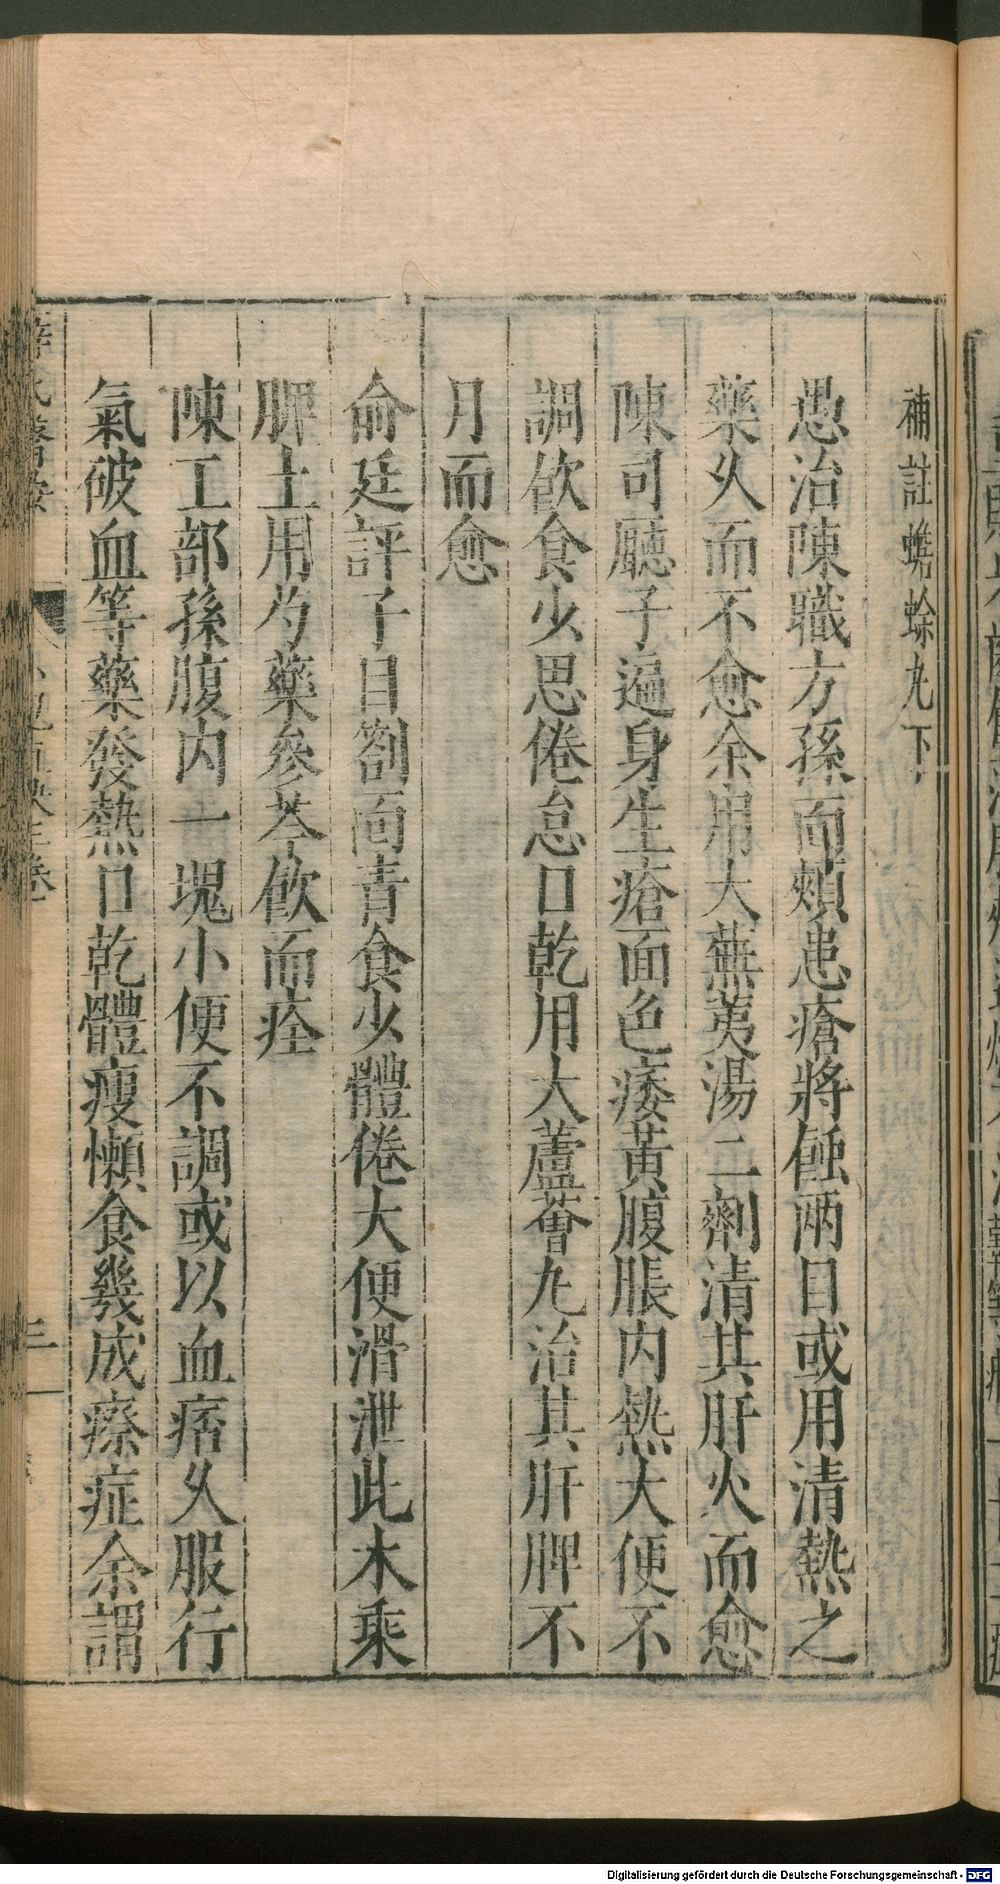 補註蟾蜍丸下
愚治陳職方孫面頰患瘡將蝕兩目或用清熱之
藥久而不愈余用大蕪荑湯二劑清其肝火而愈
陳司廳子遍身生瘡面色痿黃腹脹內熱大便不
調飲食少思倦怠口乾用大蘆薈丸治其肝脾不
月而愈
俞廷評子目劄面青食少體倦大便滑泄此木乘
脾土用芍藥參苓飲而痊
陳工部孫腹內一塊小便不調或以血痞久服行
氣破血等藥發熱口乾體瘦懶食幾成瘵症余謂
Digitalisierung gefördert durch die Deutsche Forschungsgemeinschaft - DFG